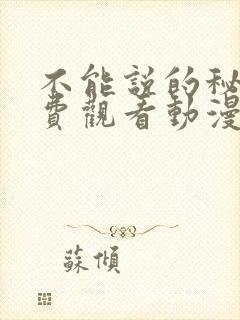 不能說的秘
費觀看動漫
蘇傾